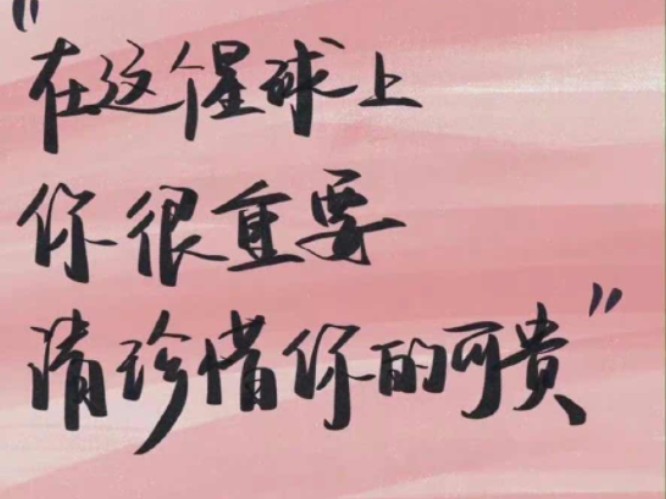 "在这个星球上
你很重要
请珍惜你的可貴"